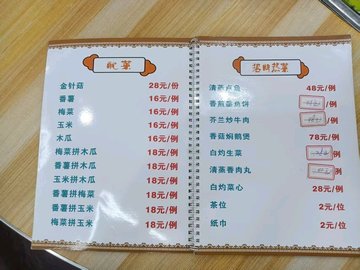 金针菇 28元/份
番薯 16元/例
梅菜 16元/例
玉米 16元/例
木瓜 16元/例
梅菜拼木瓜 18元/例
番薯拼木瓜 18元/例
玉米拼木瓜 18元/例
番薯拼梅菜 18元/例
番薯拼玉米 18元/例
梅菜拼玉米 18元/例
清蒸 48元/例
香煎 饼
芥兰炒牛肉
香菇焖鹅煲 78元/例
白灼生菜 /例
清蒸香肉丸 /例
白灼菜心 28元/例
茶位 2元/位
纸巾 2元/位